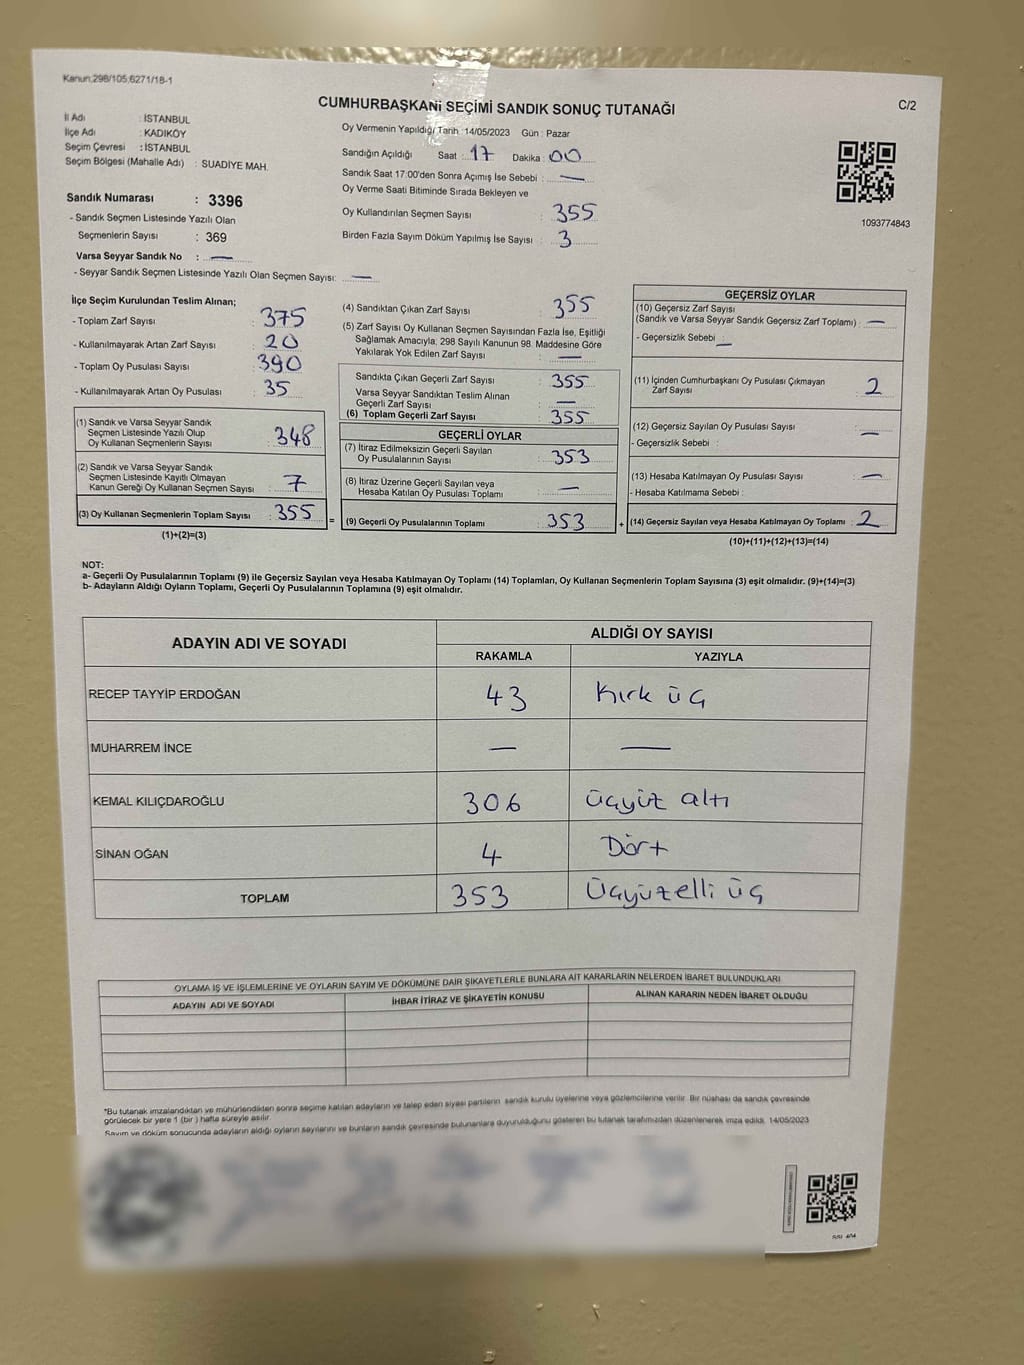 Kanun:298/105;6271/18-1
CUMHURBAŞKANI SEÇİMİ SANDIK SONUÇ TUTANAĞI
C/2
İl Adı : İSTANBUL
İlçe Adı : KADIKÖY
Seçim Çevresi : İSTANBUL
Seçim Bölgesi (Mahalle Adı) : SUADİYE MAH.
Oy Vermenin Yapıldığı Tarih :14/05/2023 Gün : Pazar
Sandığın Açıldığı Saat : 17 Dakika : 00
Sandık Saat 17:00'den Sonra Açımış İse Sebebi : —
Oy Verme Saati Bitiminde Sırada Bekleyen ve
Oy Kullandırılan Seçmen Sayısı : 355
Birden Fazla Sayım Döküm Yapılmış İse Sayısı : 3
1093774843
Sandık Numarası : 3396
- Sandık Seçmen Listesinde Yazılı Olan
Seçmenlerin Sayısı : 369
Varsa Seyyar Sandık No : —
- Seyyar Sandık Seçmen Listesinde Yazılı Olan Seçmen Sayısı: —
İlçe Seçim Kurulundan Teslim Alınan;
- Toplam Zarf Sayısı : 375
- Kullanılmayarak Artan Zarf Sayısı : 20
- Toplam Oy Pusulası Sayısı : 390
- Kullanılmayarak Artan Oy Pusulası : 35
(1) Sandık ve Varsa Seyyar Sandık
Seçmen Listesinde Yazılı Olup
Oy Kullanan Seçmenlerin Sayısı : 348
(2) Sandık ve Varsa Seyyar Sandık
Seçmen Listesinde Kayıtlı Olmayan
Kanun Gereği Oy Kullanan Seçmen Sayısı : 7
(3) Oy Kullanan Seçmenlerin Toplam Sayısı : 355
(1)+(2)=(3)
(4) Sandıktan Çıkan Zarf Sayısı : 355
(5) Zarf Sayısı Oy Kullanan Seçmen Sayısından Fazla İse, Eşitliği
Sağlamak Amacıyla, 298 Sayılı Kanunun 98. Maddesine Göre
Yakılarak Yok Edilen Zarf Sayısı : —
Sandıkta Çıkan Geçerli Zarf Sayısı : 355
Varsa Seyyar Sandıktan Teslim Alınan
Geçerli Zarf Sayısı : —
(6) Toplam Geçerli Zarf Sayısı : 355
GEÇERLİ OYLAR
(7) İtiraz Edilmeksizin Geçerli Sayılan
Oy Pusulalarının Sayısı : 353
(8) İtiraz Üzerine Geçerli Sayılan veya
Hesaba Katılan Oy Pusulası Toplamı : —
= (9) Geçerli Oy Pusulalarının Toplamı : 353 +
GEÇERSİZ OYLAR
(10) Geçersiz Zarf Sayısı
(Sandık ve Varsa Seyyar Sandık Geçersiz Zarf Toplamı) : —
- Geçersizlik Sebebi : —
(11) İçinden Cumhurbaşkanı Oy Pusulası Çıkmayan
Zarf Sayısı : 2
(12) Geçersiz Sayılan Oy Pusulası Sayısı : —
- Geçersizlik Sebebi :
(13) Hesaba Katılmayan Oy Pusulası Sayısı : —
- Hesaba Katılmama Sebebi :
(14) Geçersiz Sayılan veya Hesaba Katılmayan Oy Toplamı : 2
(10)+(11)+(12)+(13)=(14)
NOT:
a- Geçerli Oy Pusulalarının Toplamı (9) ile Geçersiz Sayılan veya Hesaba Katılmayan Oy Toplamı (14) Toplamları, Oy Kullanan Seçmenlerin Toplam Sayısına (3) eşit olmalıdır. (9)+(14)=(3)
b- Adayların Aldığı Oyların Toplamı, Geçerli Oy Pusulalarının Toplamına (9) eşit olmalıdır.
ADAYIN ADI VE SOYADI ALDIĞI OY SAYISI
RAKAMLA YAZIYLA
RECEP TAYYİP ERDOĞAN 43 Kırk üç
MUHARREM İNCE — —
KEMAL KILIÇDAROĞLU 306 üçyüz altı
SİNAN OĞAN 4 Dört
TOPLAM 353 Üçyüzelli üç
OYLAMA İŞ VE İŞLEMLERİNE VE OYLARIN SAYIM VE DÖKÜMÜNE DAİR ŞİKAYETLERLE BUNLARA AİT KARARLARIN NELERDEN İBARET BULUNDUKLARI
ADAYIN ADI VE SOYADI İHBAR İTİRAZ VE ŞİKAYETİN KONUSU ALINAN KARARIN NEDEN İBARET OLDUĞU
*Bu tutanak imzalandıktan ve mühürlendikten sonra seçime katılan adayların ve talep eden siyasi partilerin sandık kurulu üyelerine veya gözlemcilerine verilir. Bir nüshası da sandık çevresinde
görülecek bir yere 1 (bir ) hafta süreyle asılır.
Sayım ve döküm sonucunda adayların aldığı oyların sayılarını ve bunların sandık çevresinde bulunanlara duyurulduğunu gösteren bu tutanak tarafımızdan düzenlenerek imza edildi. 14/05/2023